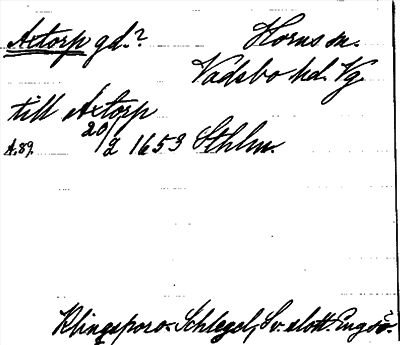 Axtorp gd.? Horns sn.
Vadsbo hd. Vg
till Axtorp
A.89. 20/2 1653 Sthlm.
Klingspor o. Schlegel, Sv. slott. Engsö.